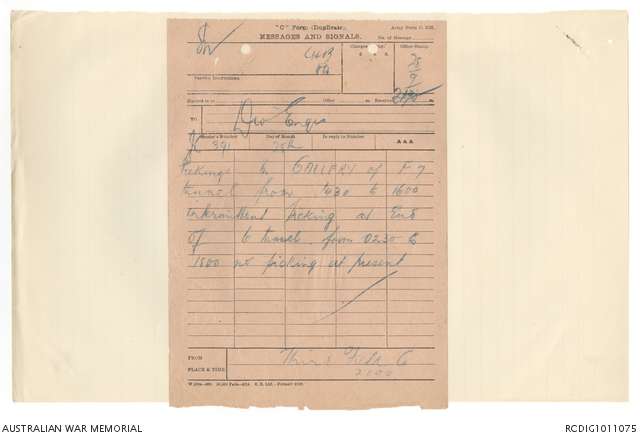 "C" Form (Duplicate). Army Form C. 2123.
MESSAGES AND SIGNALS. No. of Message
Charges to Pay. Office Stamp.
£ s. d.
Service Instructions.
Handed in at Office m. Received m.
TO Div Engrs
Sender's Number Day of Month In reply to Number AAA
391 25th
Pickings in GALLERY of F7
tunnel from 430 to 1600
intermittent picking at End
of tunnel from 0230 to
1500 no picking at present
FROM Third Field Co
PLACE & TIME 2100
AUSTRALIAN WAR MEMORIAL
RCDIG1011075